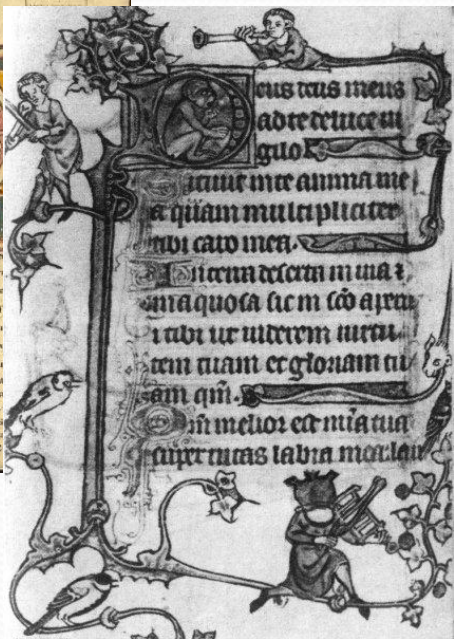 Deus deus meus
ad te de luce ui
gilo
Sitiuit in te anima me
a quam multipliciter
tibi caro mea.
In terra deserta inuia ⁊
inaquosa sic in sco̅ apparu
i tibi ut uiderem uirtu
tem tuam et gloriam tu
am qm̅.
Qm̅ melior est mia̅ tua
super uitas labia mea lau